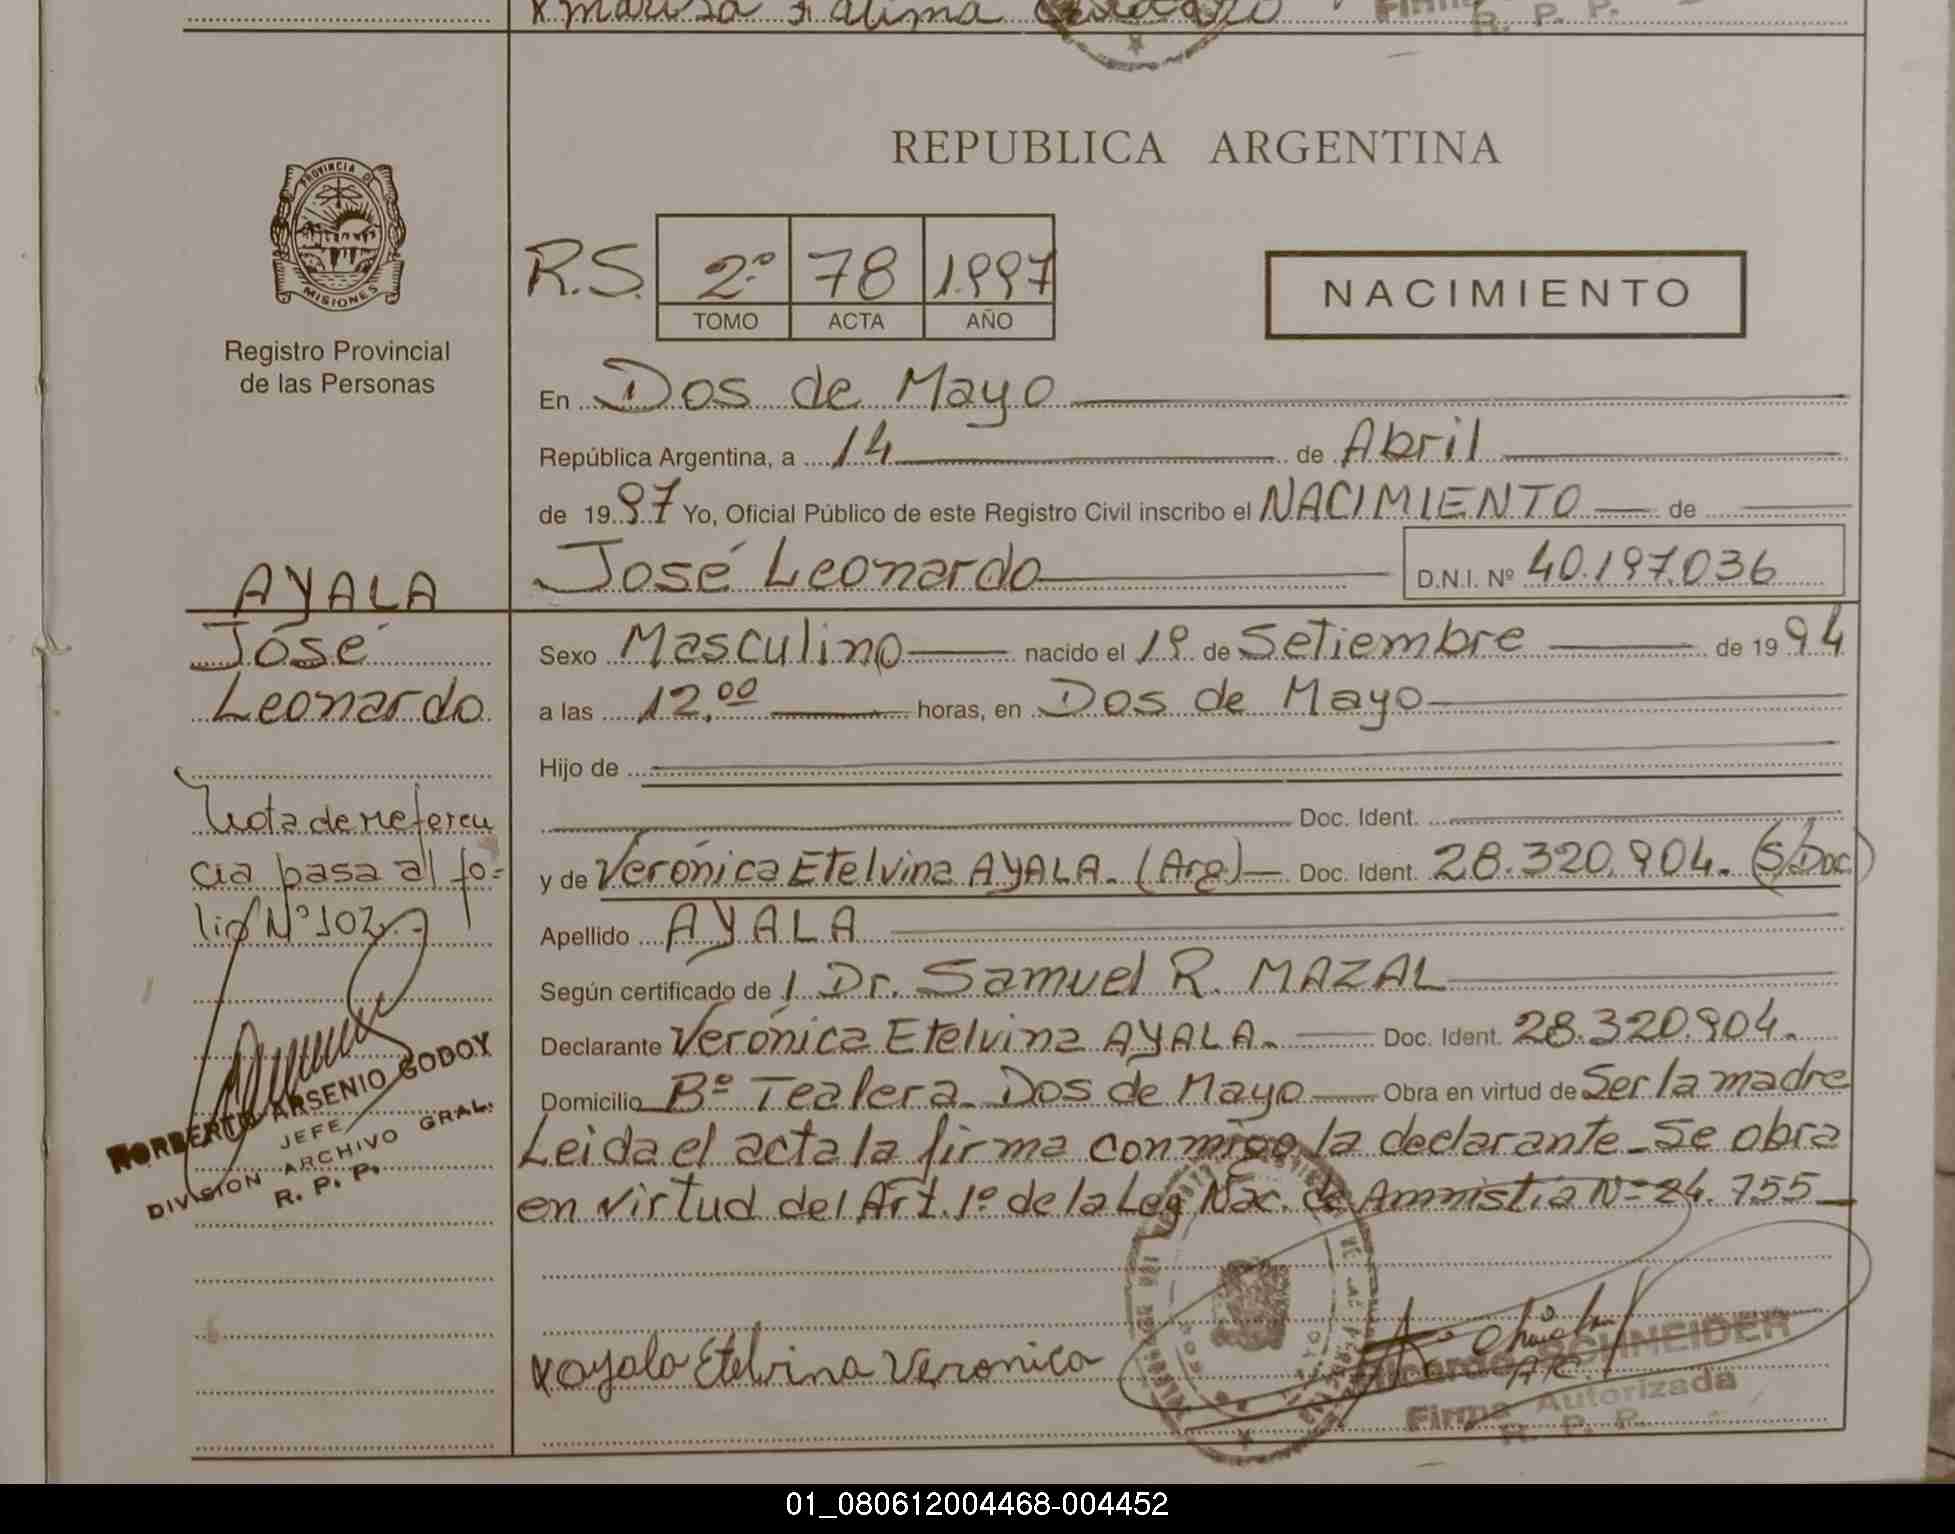 x Marisa Fatima
R. P. P.
REPUBLICA ARGENTINA
PROVINCIA DE
MISIONES
Registro Provincial
de las Personas
R.S. 2º 78 1997
TOMO ACTA AÑO
NACIMIENTO
En Dos de Mayo
República Argentina, a 14 de Abril
de 1997 Yo, Oficial Público de este Registro Civil inscribo el NACIMIENTO de
José Leonardo D.N.I. Nº 40.197.036
AYALA
José
Leonardo
Sexo Masculino nacido el 1º de Setiembre de 1994
a las 12,00 horas, en Dos de Mayo
Hijo de
Doc. Ident.
y de Verónica Etelvina AYALA. (Arg) Doc. Ident. 28.320.904. (S/Doc)
Apellido AYALA
Según certificado de Dr. Samuel R. MAZAL
Declarante Verónica Etelvina AYALA. Doc. Ident. 28.320.904.
Domicilio Bº Tealera. Dos de Mayo Obra en virtud de Ser la madre
Leida el acta la firma conmigo la declarante. Se obra
en virtud del Art. 1º de la Ley Nac. de Amnistia Nº 24.755
Nota de referen
cia pasa al fo=
lio Nº 102.
NORBERTO ARSENIO GODOY
JEFE
DIVISION ARCHIVO GRAL.
R. P. P.
x ayala Etelvina Veronica
Ricardo SCHNEIDER
Firma Autorizada
R. P. P.
01_080612004468-004452